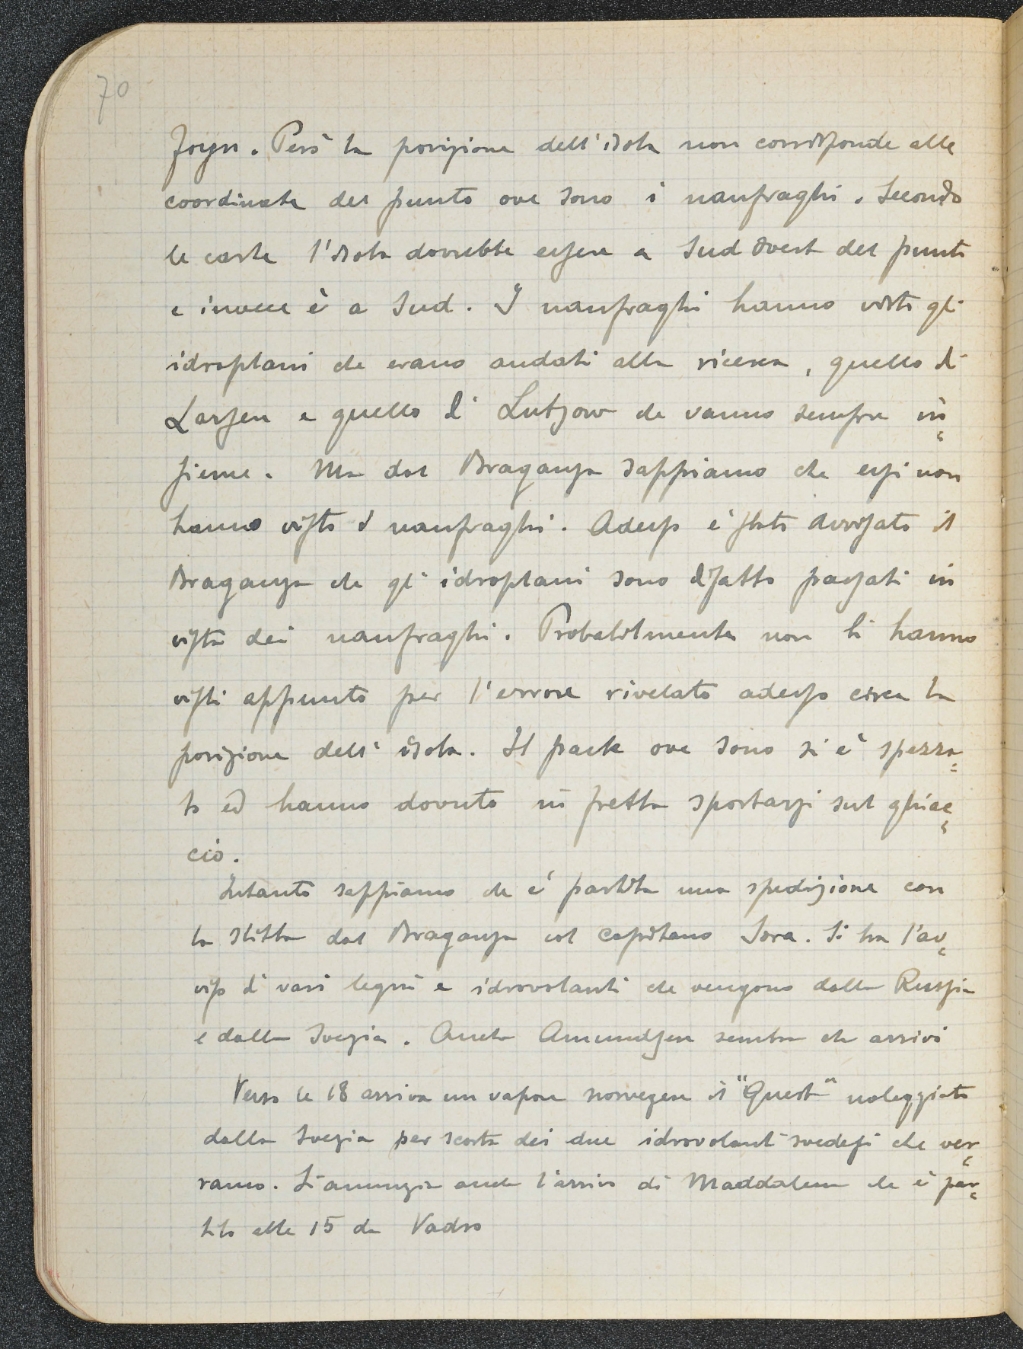 70
Foyn. Però la posizione dell'isola non corrisponde alle
coordinate del punto ove sono i naufraghi. Secondo
le carte l'isola dovrebbe essere a Sud Ovest del punto
e invece è a Sud. I naufraghi hanno visto gli
idroplani che erano andati alla ricerca, quello di
Larsen e quello di Lutzow che vanno sempre in=
sieme. Ma dal Braganza sappiamo che essi non
hanno visto i naufraghi. Adesso è stato avvisato il
Braganza che gli idroplani sono difatto passati in
vista dei naufraghi. Probabilmente non li hanno
visti appunto per l'errore rivelato adesso circa la
posizione dell'isola. Il pack ove sono si è spezza=
to ed hanno dovuto in fretta spostarsi sul ghiac=
cio.
Intanto sappiamo che è partita una spedizione con
la slitta dal Braganza col capitano Sora. Si ha l'av=
viso di vari legni e idrovolanti che vengono dalla Russia
e dalla Svezia. Anche Amundsen sembra che arrivi
Verso le 18 arriva un vapore norvegese il "Quest" noleggiato
dalla Svezia per scorta dei due idrovolanti svedesi che ver=
ranno. Si annunzia anche l'arrivo di Maddalena che è par=
tito alle 15 da Vadso